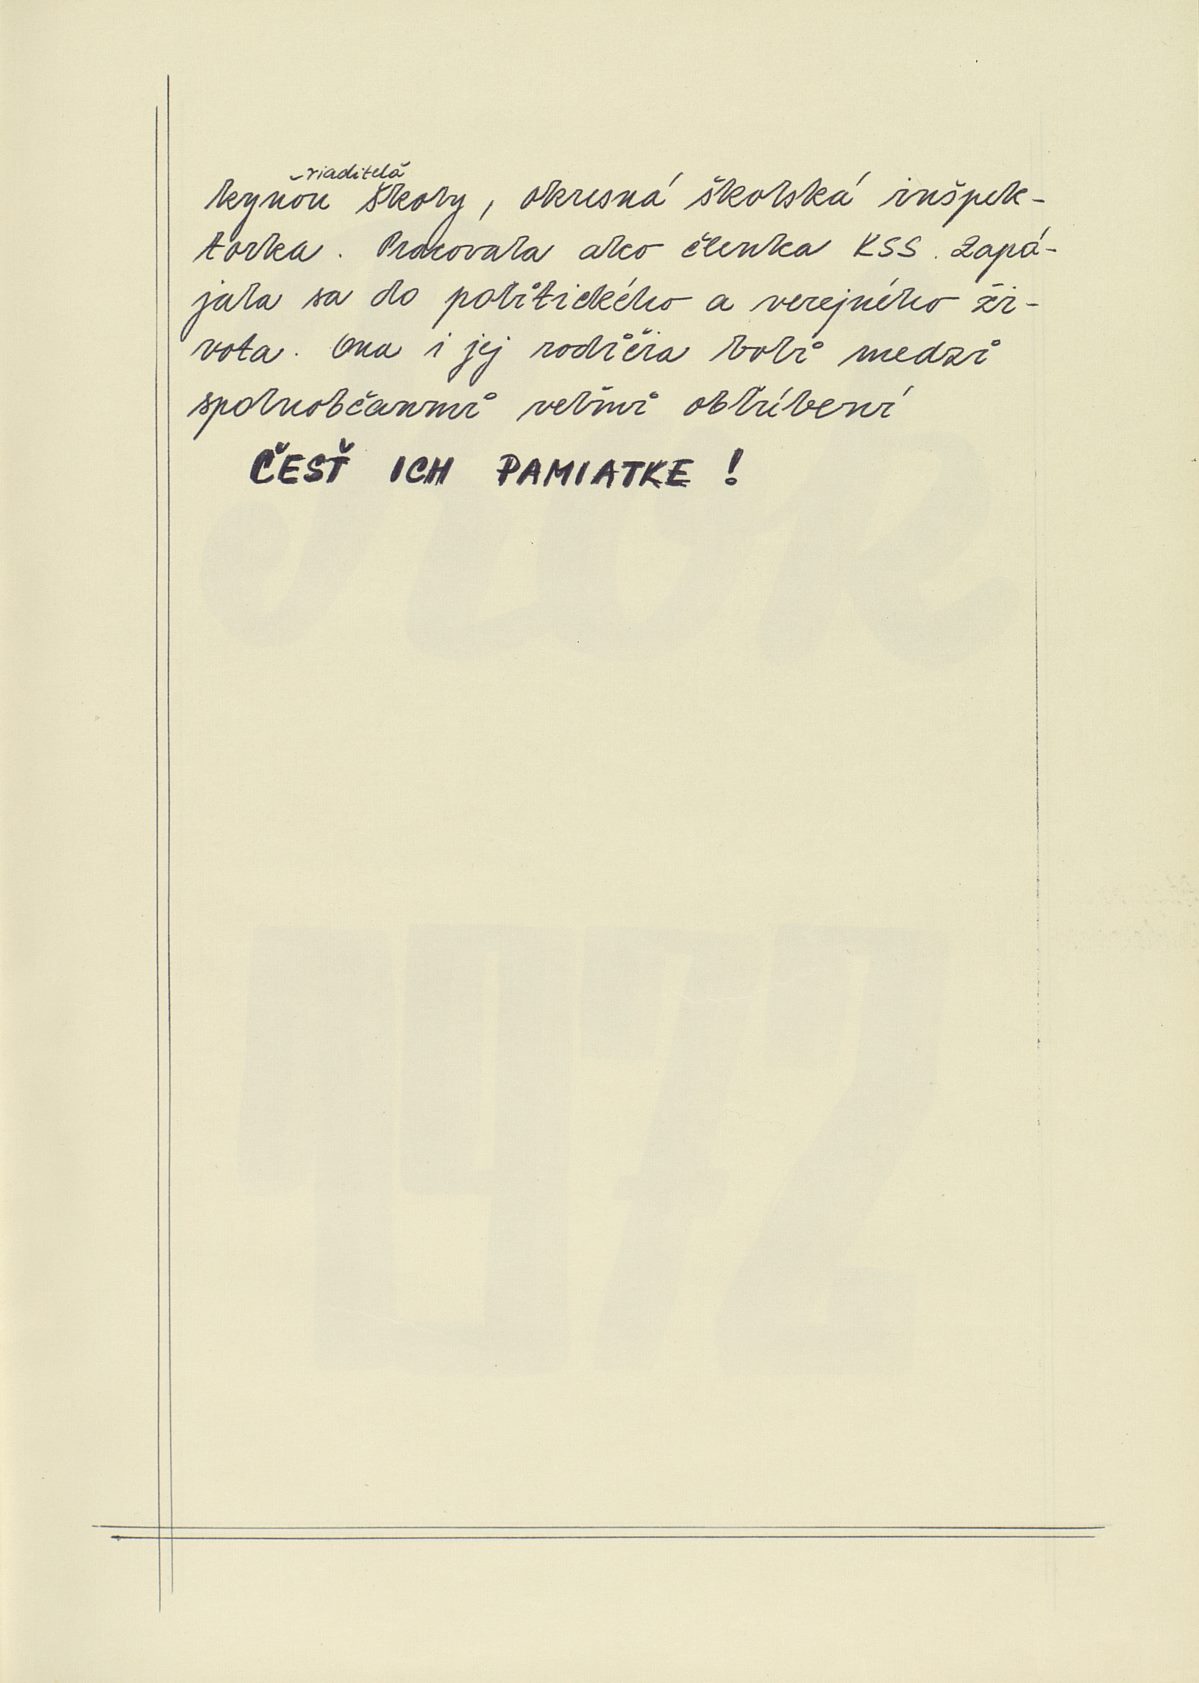 riaditelá
kyňou školy, okresná školská inšpek-
torka. Pracovala ako členka KSS. Zapá-
jala sa do politického a verejného ži-
vota. Ona i jej rodičia boli medzi
spoluobčanmi veľmi obľúbení
ČESŤ ICH PAMIATKE!
Rok
1972